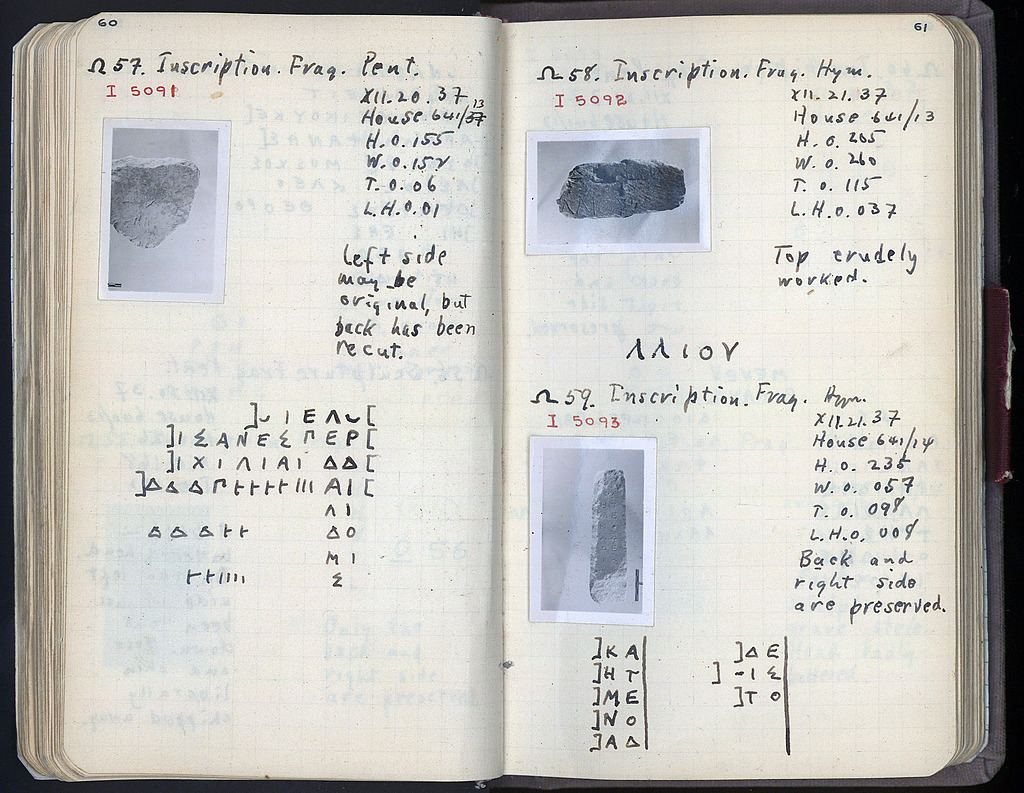 60
Ω 57. Inscription. Frag. Pent.
I 5091
XII. 20. 37
House 641/13
H. 0.155
W. 0.152
T. 0.06
L.H. 0.01
Left side
may be
original, but
back has been
recut.
]ΙΕΛ[
]ΙΣΑΝΕΣΠΕΡ[
]ΙΧΙΛΙΑΙ ΔΔ[
]ΔΔΔΓͰͰͰͰΙΙΙ ΑΙ[
ΛΙ
ΔΔΔͰͰ ΔΟ
ΜΙ
ͰͰΙΙΙΙ Σ
61
Ω 58. Inscription. Frag. Hym.
I 5092
XII. 21. 37
House 641/13
H. 0.205
W. 0.260
T. 0.115
L.H. 0.037
Top crudely
worked.
ΛΛΙΟΥ
Ω 59. Inscription. Frag. Hym.
I 5093
XII. 21. 37
House 641/14
H. 0.235
W. 0.057
T. 0.098
L.H. 0.008
Back and
right side
are preserved.
]ΚΑ
]ΗΤ
]ΜΕ
]ΝΟ
]ΑΔ
]ΔΕ
]-ΙΣ
]ΤΟ